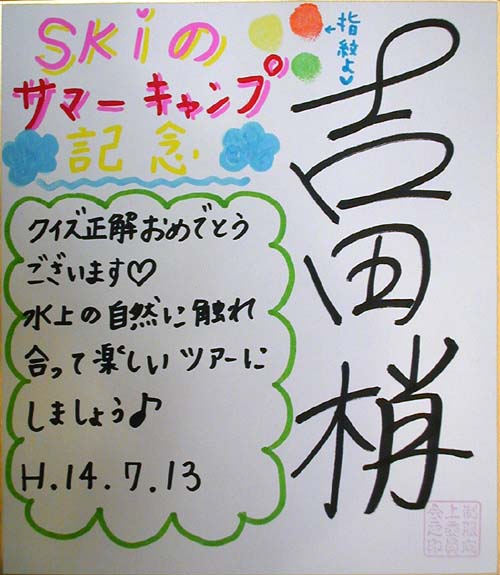 SKiの
サマーキャンプ
記念
指紋よ♡
吉田梢
クイズ正解おめでとう
ございます♡
水上の自然に触れ
合って楽しいツアーに
しましょう♪
H.14.7.13